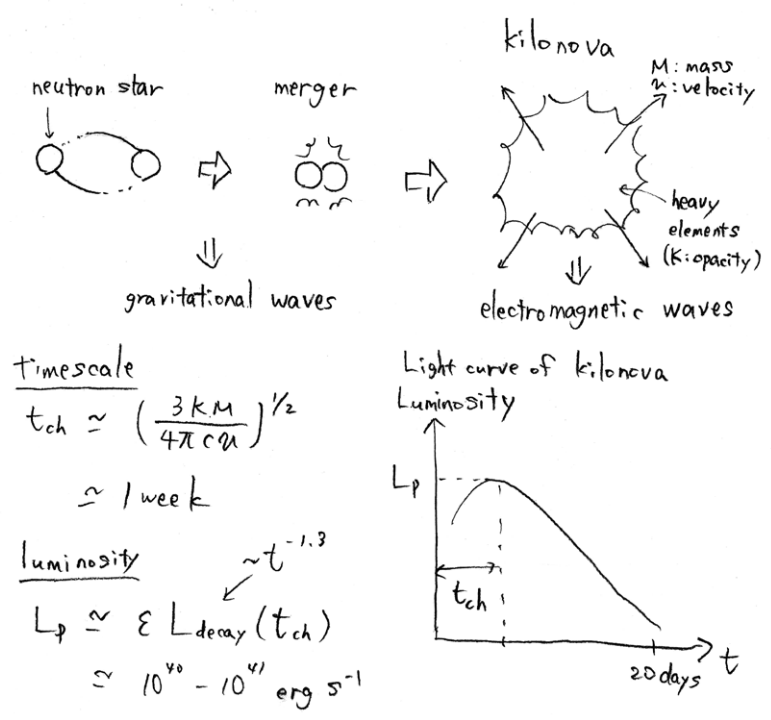 kilonova
M: mass
v: velocity
neutron star
merger
heavy
elements
(κ: opacity)
gravitational waves
electromagnetic waves
timescale
t_ch ≃ (3κM / 4πcv)^1/2
≃ 1 week
luminosity
~t^-1.3
L_p ≃ ε L_decay (t_ch)
≃ 10^40 - 10^41 erg s^-1
Light curve of kilonova
Luminosity
L_p
t_ch
20 days
t